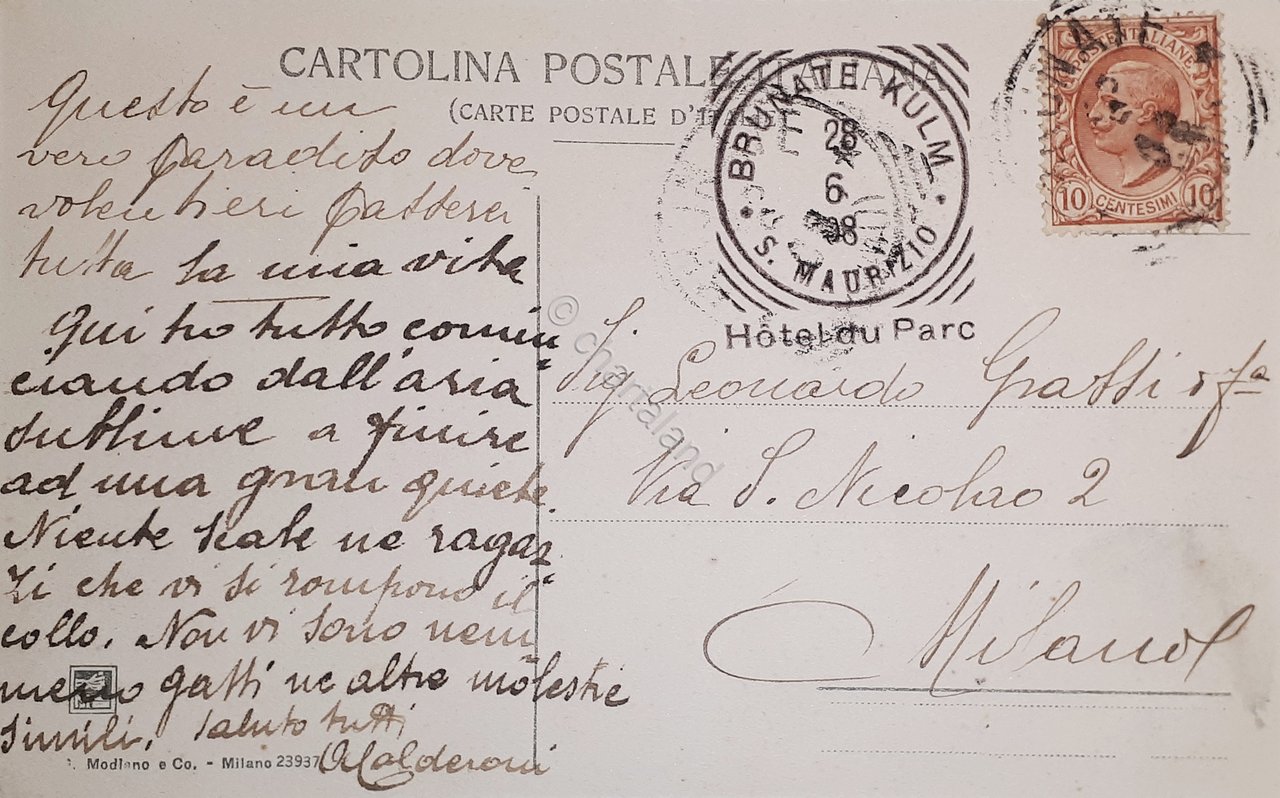 CARTOLINA POSTALE ITALIANA
(CARTE POSTALE D'I
Questo è un
vero Paradiso dove
volentieri passerei
tutta la mia vita
Qui ho tutto comin
ciando dall'aria
sublime a finire
ad una gran quiete.
Niente scale ne ragaz
zi che vi si rompono il
collo. Non vi sono nem
meno gatti ne altre molestie
simili. Saluto tutti
Calderoni
BRUNATE KULM
28
6
08
S. MAURIZIO
Hôtel du Parc
POSTE ITALIANE
10 CENTESIMI 10
Sig. Leonardo Gatti & fa
Via S. Nicolao 2
Milano
Modiano e Co. - Milano 23937
© chartaland